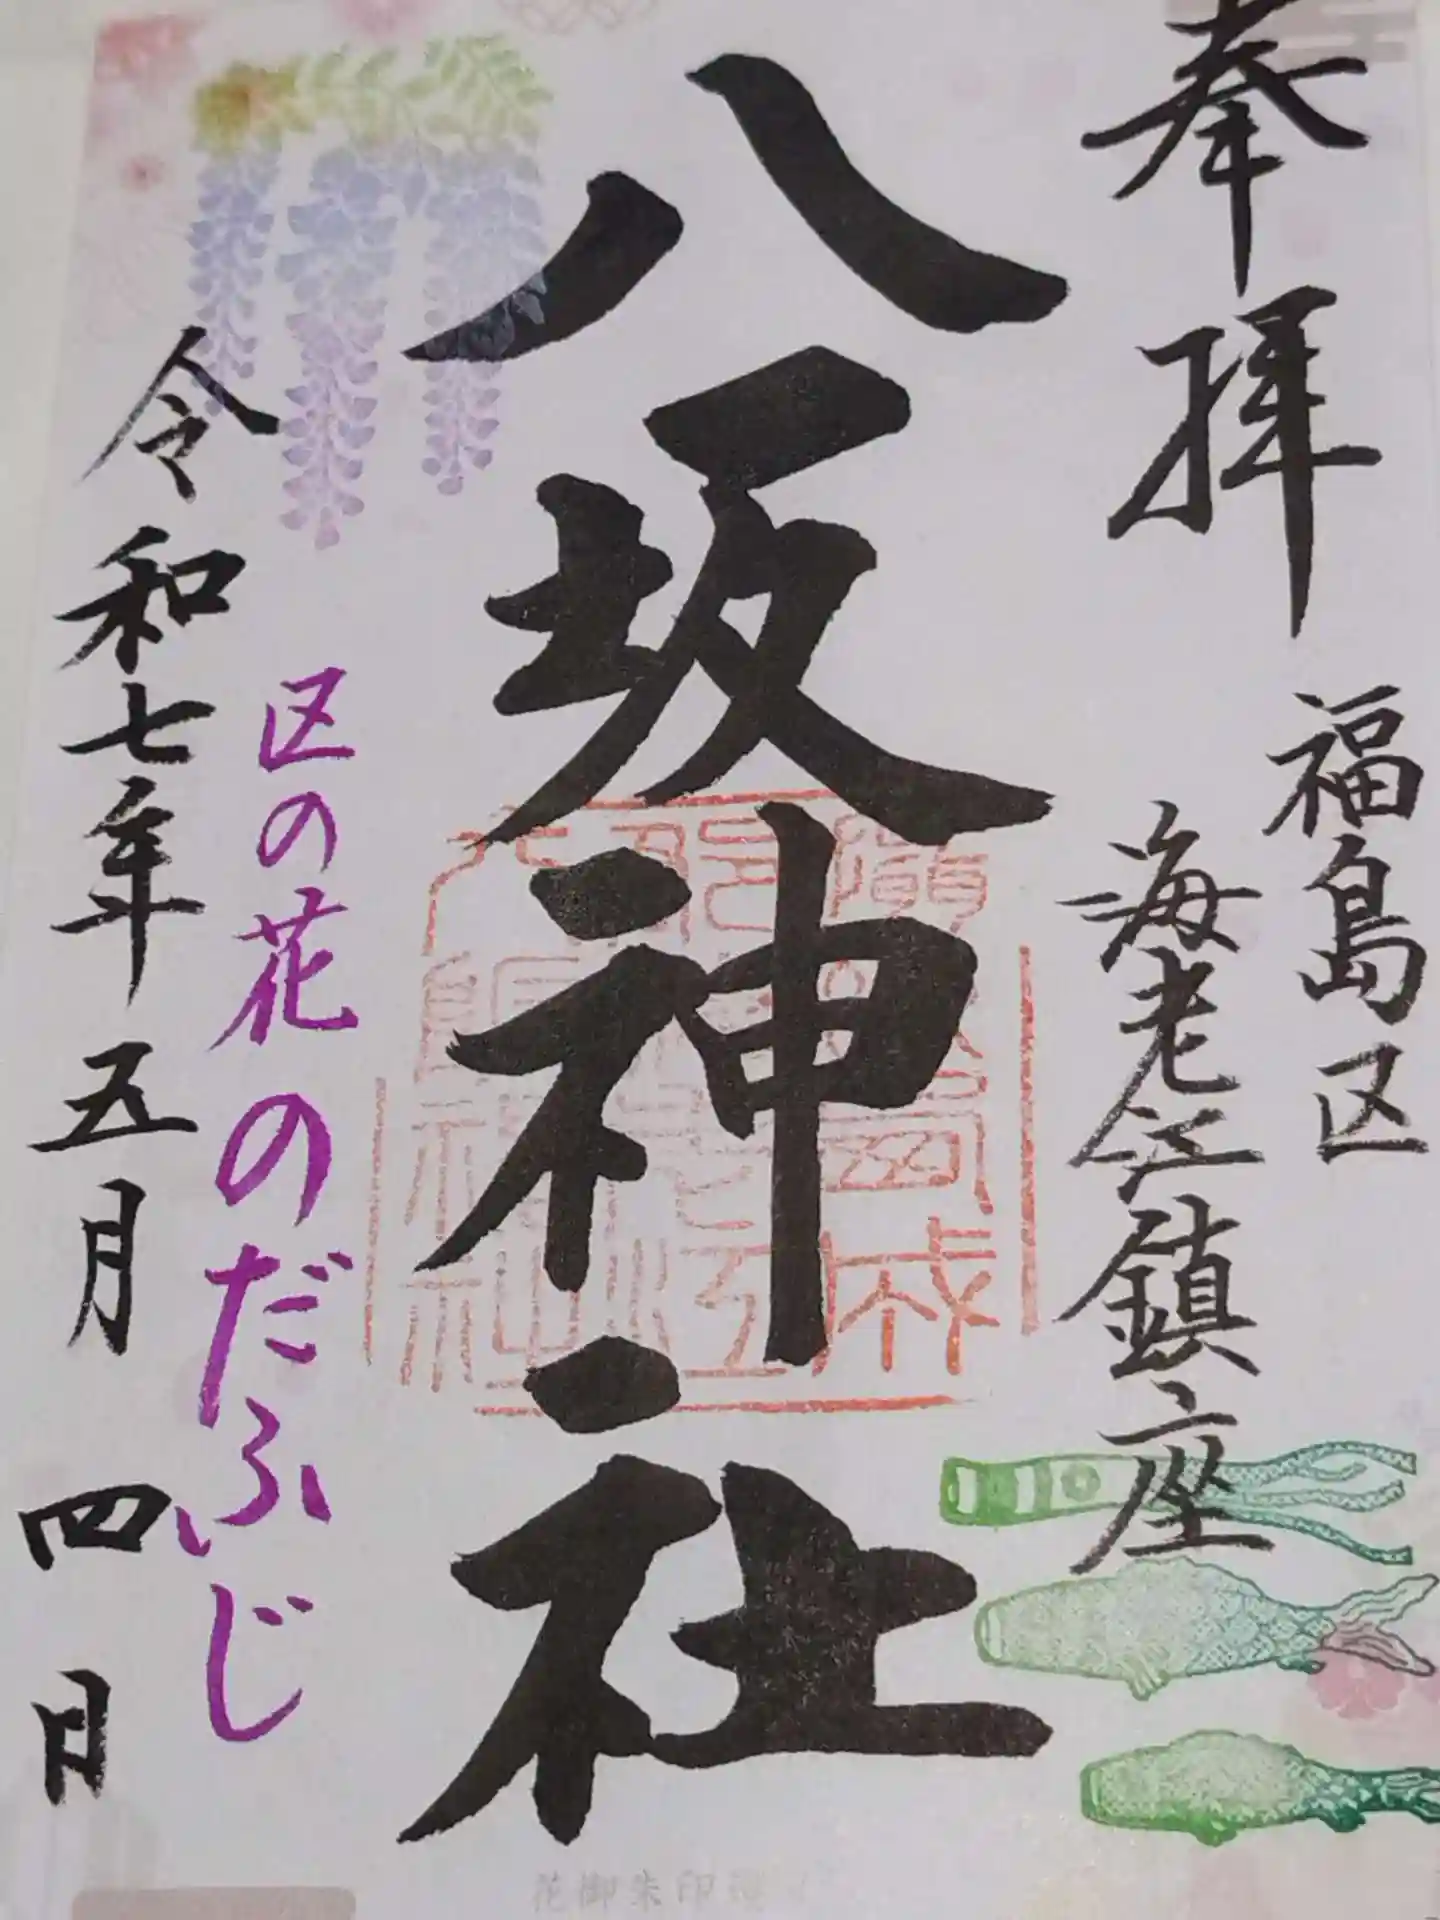 奉拝
福島区
海老江鎮座
八坂神社
区の花のだふじ
令和七年五月四日
花御朱印